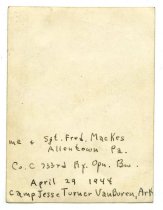 me & Sgt. Fred. Mackes
Allentown Pa.
Co. C 733rd Ry. Opn. Bn.
April 29 1944
Camp Jesse Turner VanBuren, Ark